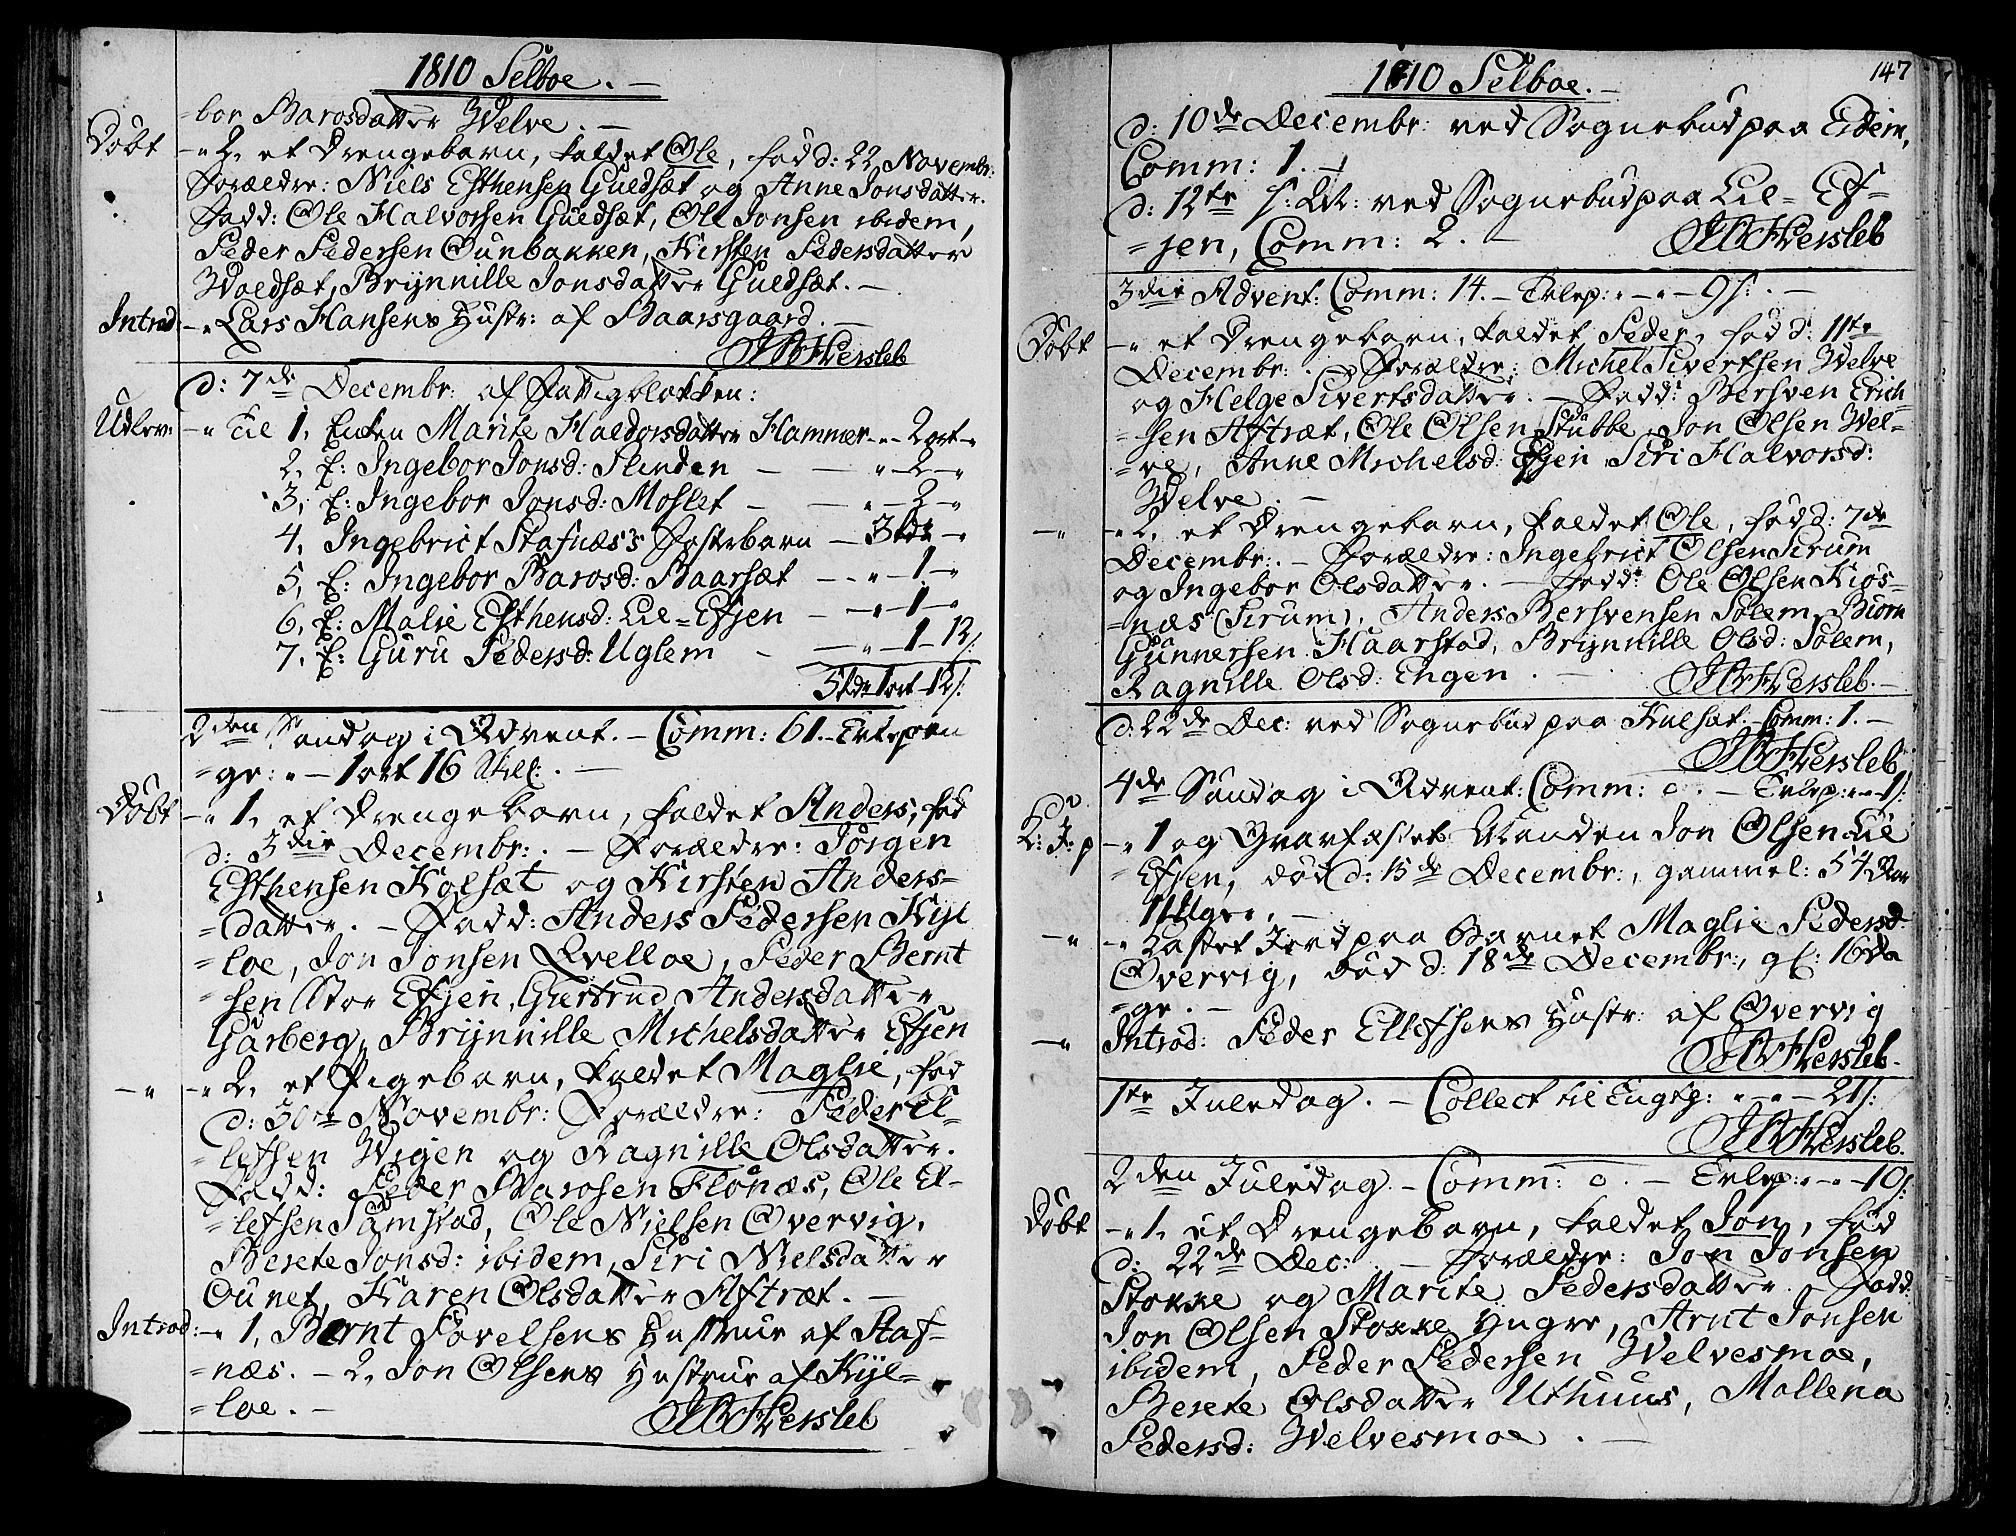 1810 Selboe. —
=bor Barosdatter Welve. —
Döbt —„ 2, et Drengebarn, kaldet Ole, föd d: 22 Novembr:
Forældre: Niels Esthensen Guldsæt og Anne Jonsdatter.
Fadd: Ole Halvorsen Guldsæt, Ole Jonsen ibidem,
Peder Pedersen Ounbakken, Kirsten Pedersdatter
Woldsæt, Brynnille Jonsdatter Guldsæt. —
Introd: —„ Lars Hansens Hustr: af Baarsgaard. —
JBHersleb
d: 7de Decembr: af Fattigblokken:
Udlev: —„ Til 1, Enken Marite Haldorsdatter Hammer —„— 2 ort —„
2, E: Ingebor Jonsd: Slinden — „— 2 —„
3, E: Ingebor Jonsd: Moslet — — „— 2 —„
4, Ingebrict Stafnæs's Fosterbarn — 3 rdr —„
5, E: Ingebor Barosd: Baarsæt — —„— 1 —„
6, E: Malie Esthensd: Lil=Efjen — —„— 1 —„
7, E: Guru Pedersd: Uglem — —„— 1 — 12 s:
5 rdr 1 ort 12 s:
2den Söndag i Advent. — Comm: 61. —
=ge: „— 1 ort 16 skill: . —
Döbt —„ 1, et Drengebarn, kaldet Anders, föd
d: 3die Decembr: . — Forældre: Jörgen
Esthensen Kolsæt og Kirsten Anders=
=datter. — Fadd: Anders Pedersen Kyl
=loe, Jon Jonsen Qvelloe, Peder Bernt
=sen Stor Efjen, Gurtrud Andersdatter
Garberg, Brynnille Michelsdatter Efjen
—„— —„ 2, et Pigebarn, kaldet Maglie, föd
d: 30te Novembr: Forældre: Peder El=
=lefsen Wigen og Ragnille Olsdatter.
Fadd: Peder Barosen Flönæs, Ole El=
=lefsen Samstad, Ole Nielsen Overvig,
Berete Jonsd: ibidem, Siri Nielsdatter
Ounet, Karen Olsdatter Aftræt. —
Introd: —„ 1, Bernt Povelsens Hustrue af Staf=
=næs. — 2, Jon Olsens Hustrue af Kyl=
=loe. — JBHersleb
147
1810 Selboe. —
d: 10de Decembr: ved Sognebud paa Eidem,
Comm: 1. —
d: 12te s: M: ved Sognebud paa Lil=Ef=
=jen, Comm: 2. — JBHersleb
3die Advent: Comm: 14. — Tvlep: „ — „ — 9 s: . —
Döbt —„ et Drengebarn, kaldet Peder, föd d: 11te
Decembr: . — Forældre: Michel Sivertsen Welve
og Helge Sivertsdatter. — Fadd: Bersven Erich=
=sen Aftræt, Ole Olsen Stubbe, Jon Olsen Wel=
=ve, Anne Michelsd: Efjen, Siri Halvorsd:
Welve. —
—„ —„ 2, et Drengebarn, kaldet Ole, föd d: 7de
Decembr: . — Forældre: Ingebrict Olsen Sirum
og Ingebor Olsdatter. — Fadd: Ole Olsen Kiös=
=næs (Sirum), Anders Bersvensen Solem, Biörn
Gunnersen Haarstad, Brynnille Olsd: Solem,
Ragnille Olsd: Engen. — JBHersleb. —
d: 22de Dec: ved Sognebud paa Kulsæt. Comm: 1. —
JBHersleb
4de Söndag i Advent: Comm: o. — Tvlep: „ — 1 s:
K: J: p —„ 1 og Qvarfæstet Manden Jon Olsen Lil
=Efjen, död d: 15de Decembr:, gammel: 54 Aar
11 Uger. —
—„ —„ Kastet Jord paa Barnet Maglie Pedersd:
Overvig, död d: 18de Decembr:, gl: 16 Da
=ge. —
—„ Introd: Peder Ellefsens Hustr: af Overvig
JBHersleb.
1ste Juledag. — Collect til — 21 s:
JBHersleb.
2den Juledag. — Comm: o. — Tvlep: „ — „ — 10 s:
Döbt —„ 1, et Drengebarn, kaldet Jon, föd
d: 22de Dec: . — Forældre: Jon Jonsen
Stokke og Marite Pedersdatter. Fadd:
Jon Olsen Stokke Yngre, Arnt Jonsen
ibidem, Peder Pedersen Welvesmoe,
Berete Olsdatter Uthuus, Mallena
Pedersd: Welvesmoe. —